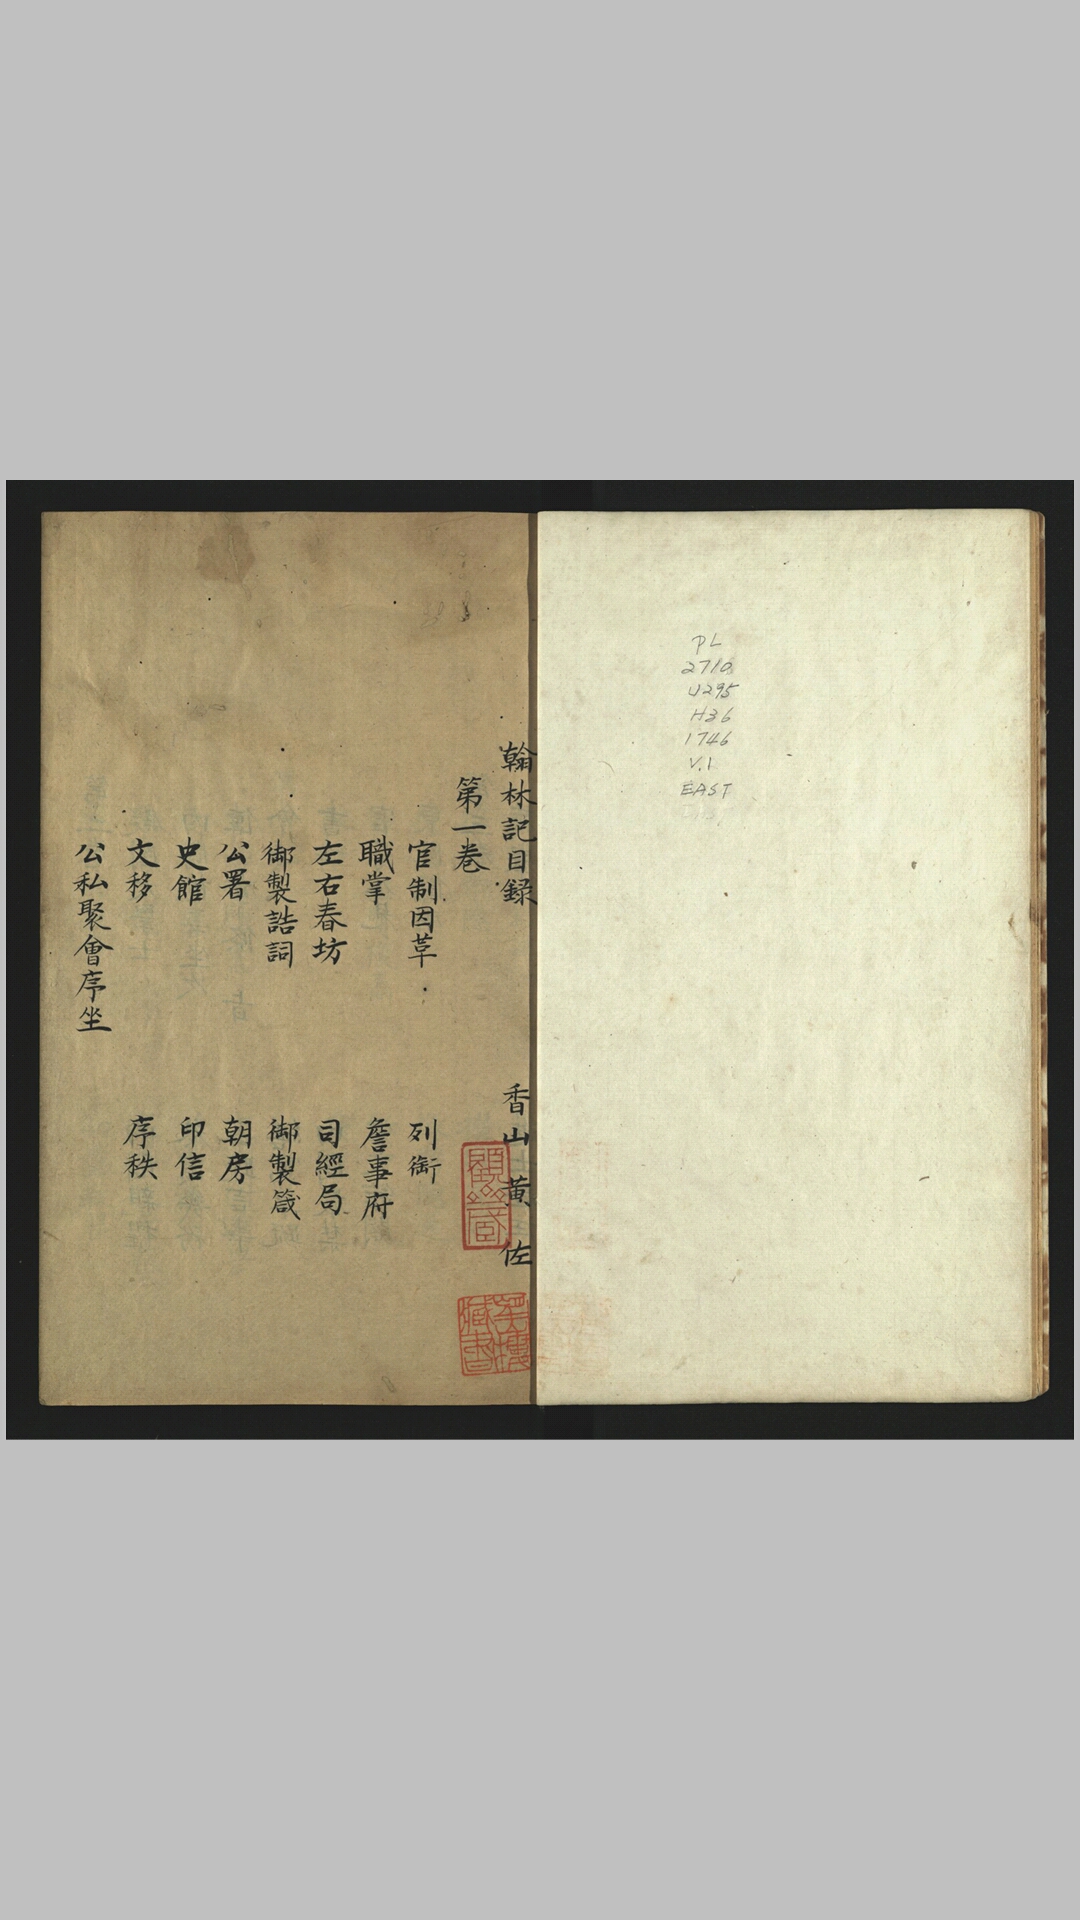 PL
2710
U295
H36
1746
V.1
EAST
翰林記目錄 香山黃佐
第一卷
官制因革 列銜
職掌 詹事府
左右春坊 司經局
御製誥詞 御製箴
公署 朝房
史館 印信
文移 序秩
公私聚會序坐
樓藏書